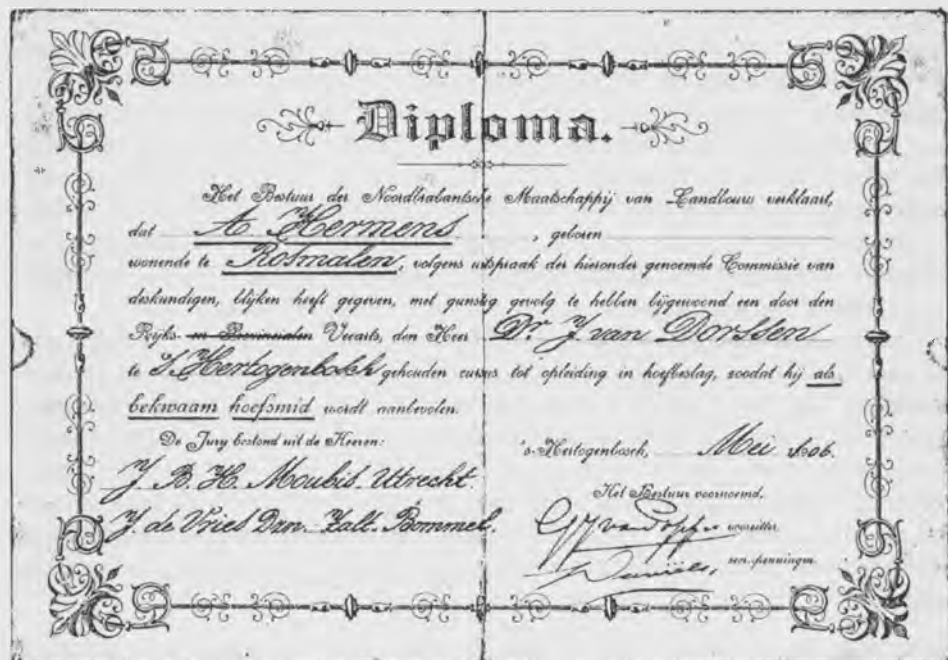 Diploma.
Het Bestuur der Noordbrabantsche Maatschappij van Landbouw verklaart,
dat A. Hermens, geboren
wonende te Rosmalen, volgens uitspraak der hieronder genoemde Commissie van
deskundigen, blijken heeft gegeven, met gunstig gevolg te hebben bijgewoond een door den
Rijks- en Provincialen Veearts, den Heer Dr. J. van Dorssen
te 's Hertogenbosch gehouden cursus tot opleiding in hoefbeslag, zoodat hij als
bekwaam hoefsmid wordt aanbevolen.
De Jury bestond uit de Heeren:
's-Hertogenbosch, Mei 1906.
J. B. H. Moubis. Utrecht.
Het Bestuur voornoemd,
J. de Vries Dzn. Zalt-Bommel.
voorzitter
secr. penningm.